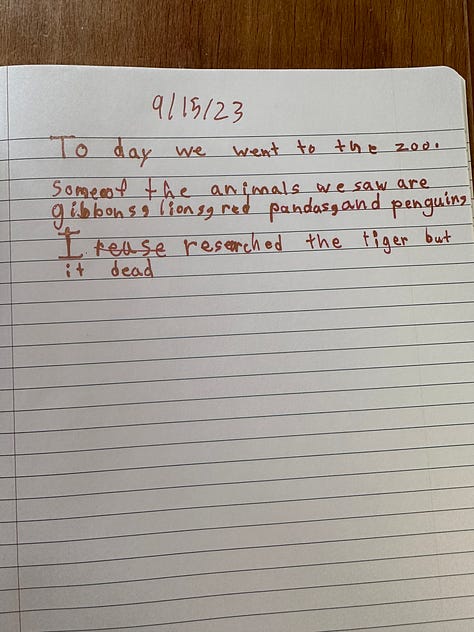 9/15/23
To day we went to the zoo.
Someof the animals we saw are
gibbons, lions, red pandas, and penguins
I rease reserched the tiger but
it dead